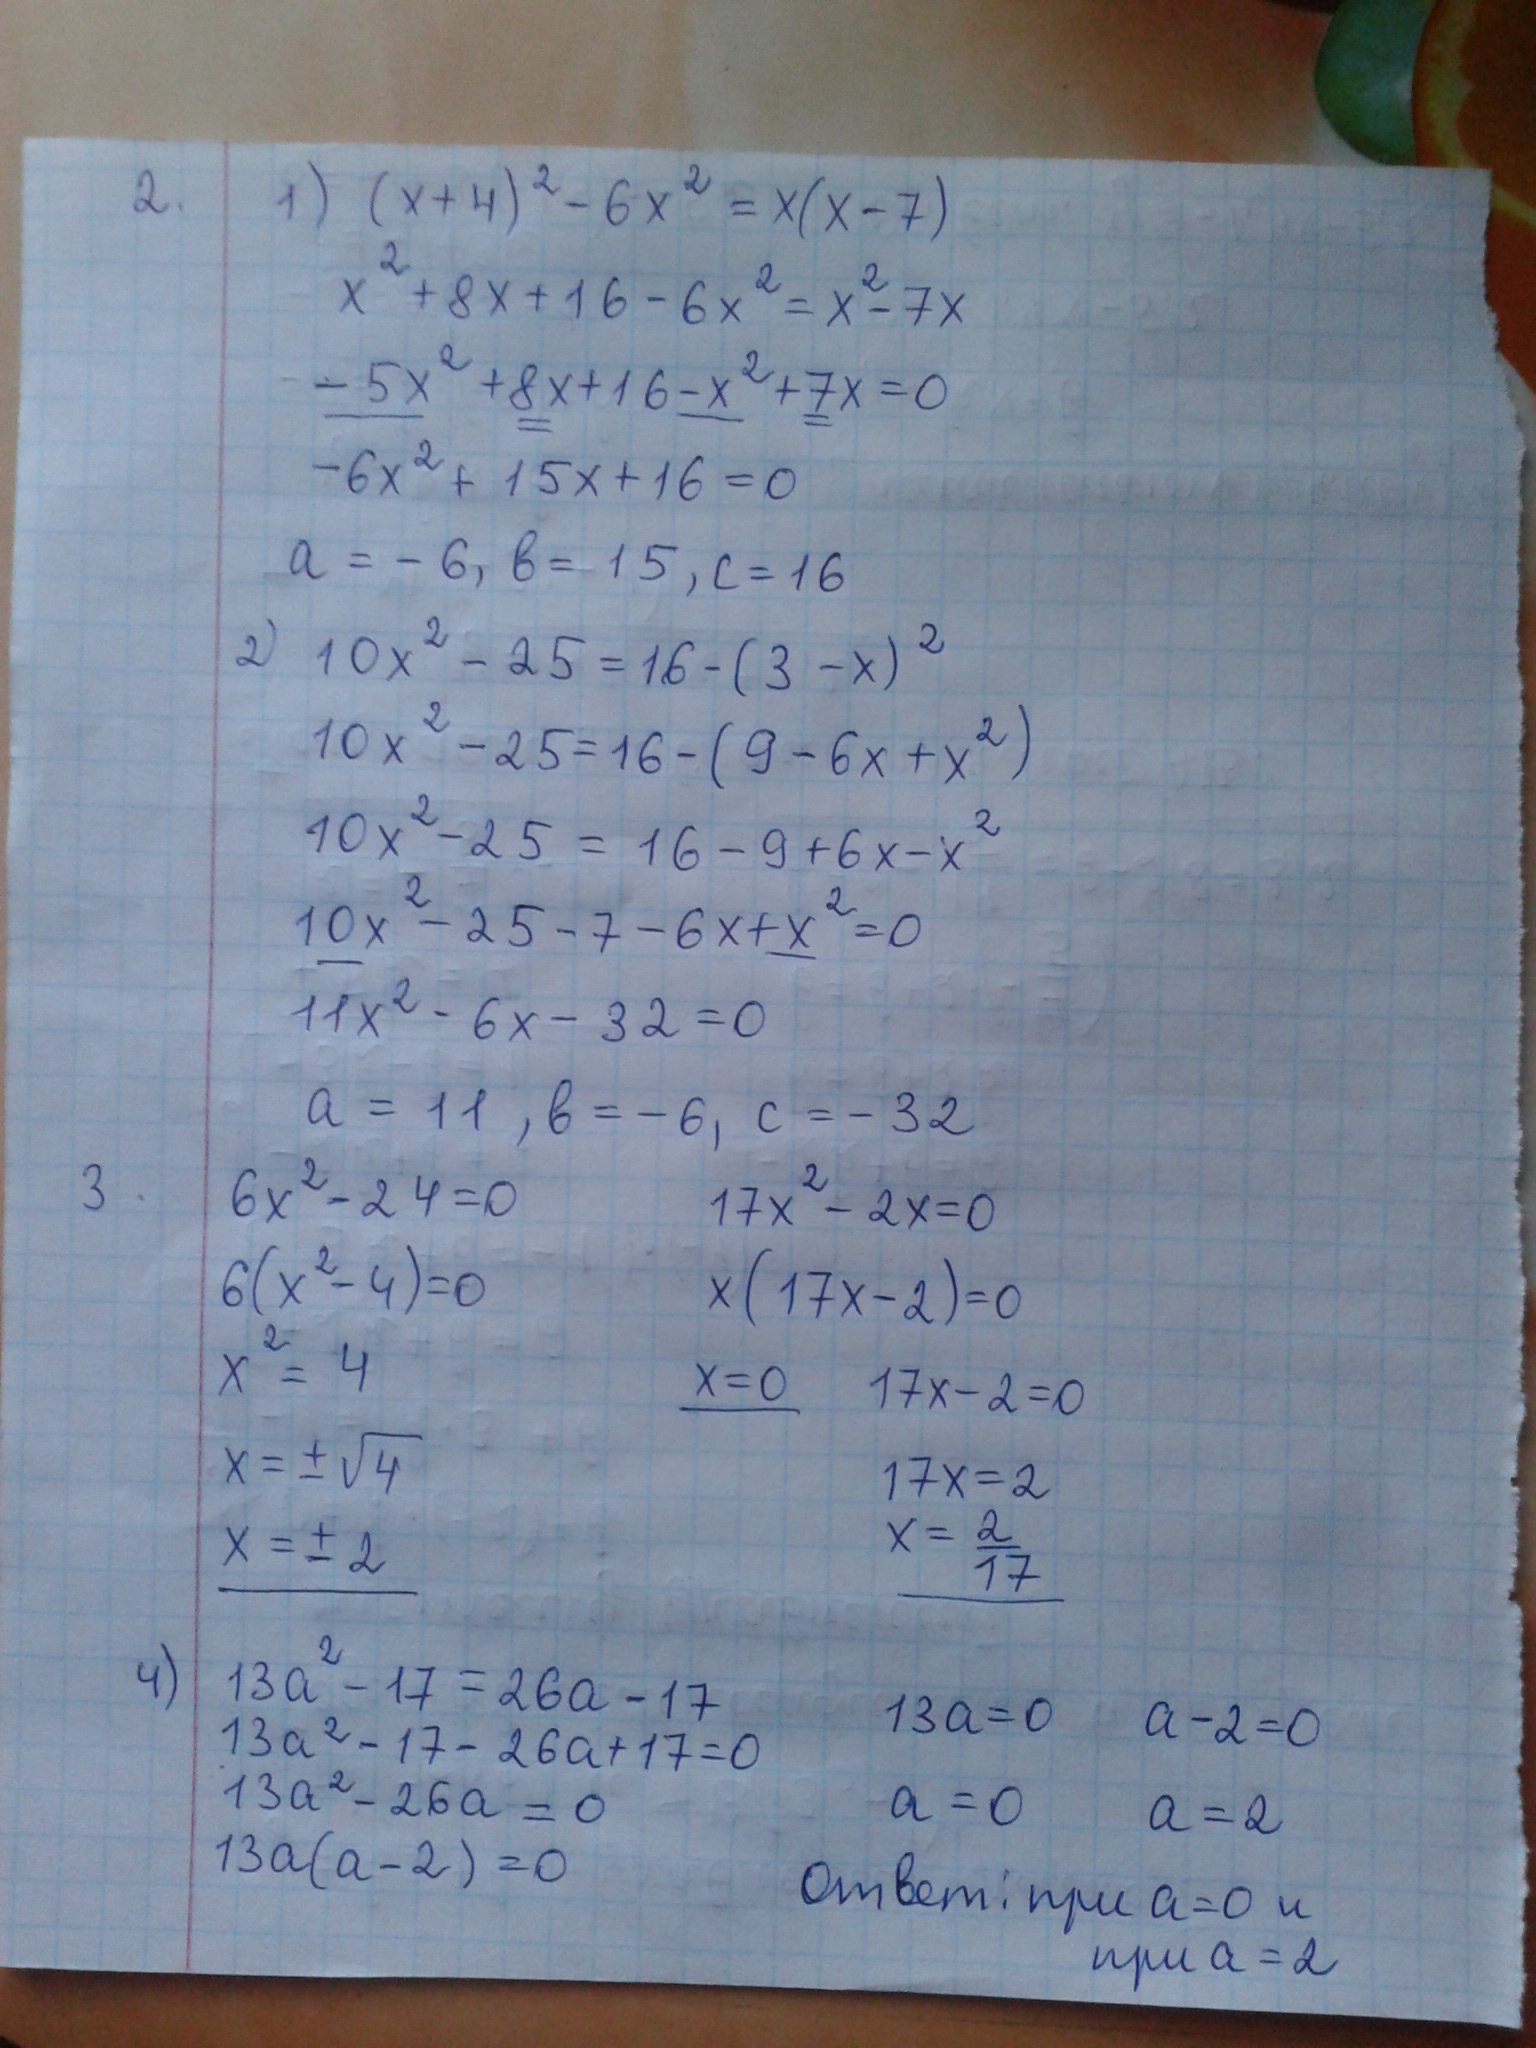 2. 1) (x+4)² - 6x² = x(x-7)
x² + 8x + 16 - 6x² = x² - 7x
- 5x² + 8x + 16 - x² + 7x = 0
-6x² + 15x + 16 = 0
a = - 6, в = 15, c = 16
2) 10x² - 25 = 16 - (3 - x)²
10x² - 25 = 16 - (9 - 6x + x²)
10x² - 25 = 16 - 9 + 6x - x²
10x² - 25 - 7 - 6x + x² = 0
11x² - 6x - 32 = 0
a = 11, в = - 6, c = - 32
3. 6x² - 24 = 0
6(x² - 4) = 0
x² = 4
x = ±√4
x = ± 2
17x² - 2x = 0
x(17x - 2) = 0
x = 0 17x - 2 = 0
17x = 2
x = 2/17
4) 13a² - 17 = 26a - 17
13a² - 17 - 26a + 17 = 0
13a² - 26a = 0
13a(a - 2) = 0
13a = 0 a - 2 = 0
a = 0 a = 2
Ответ: при a = 0 и
при a = 2